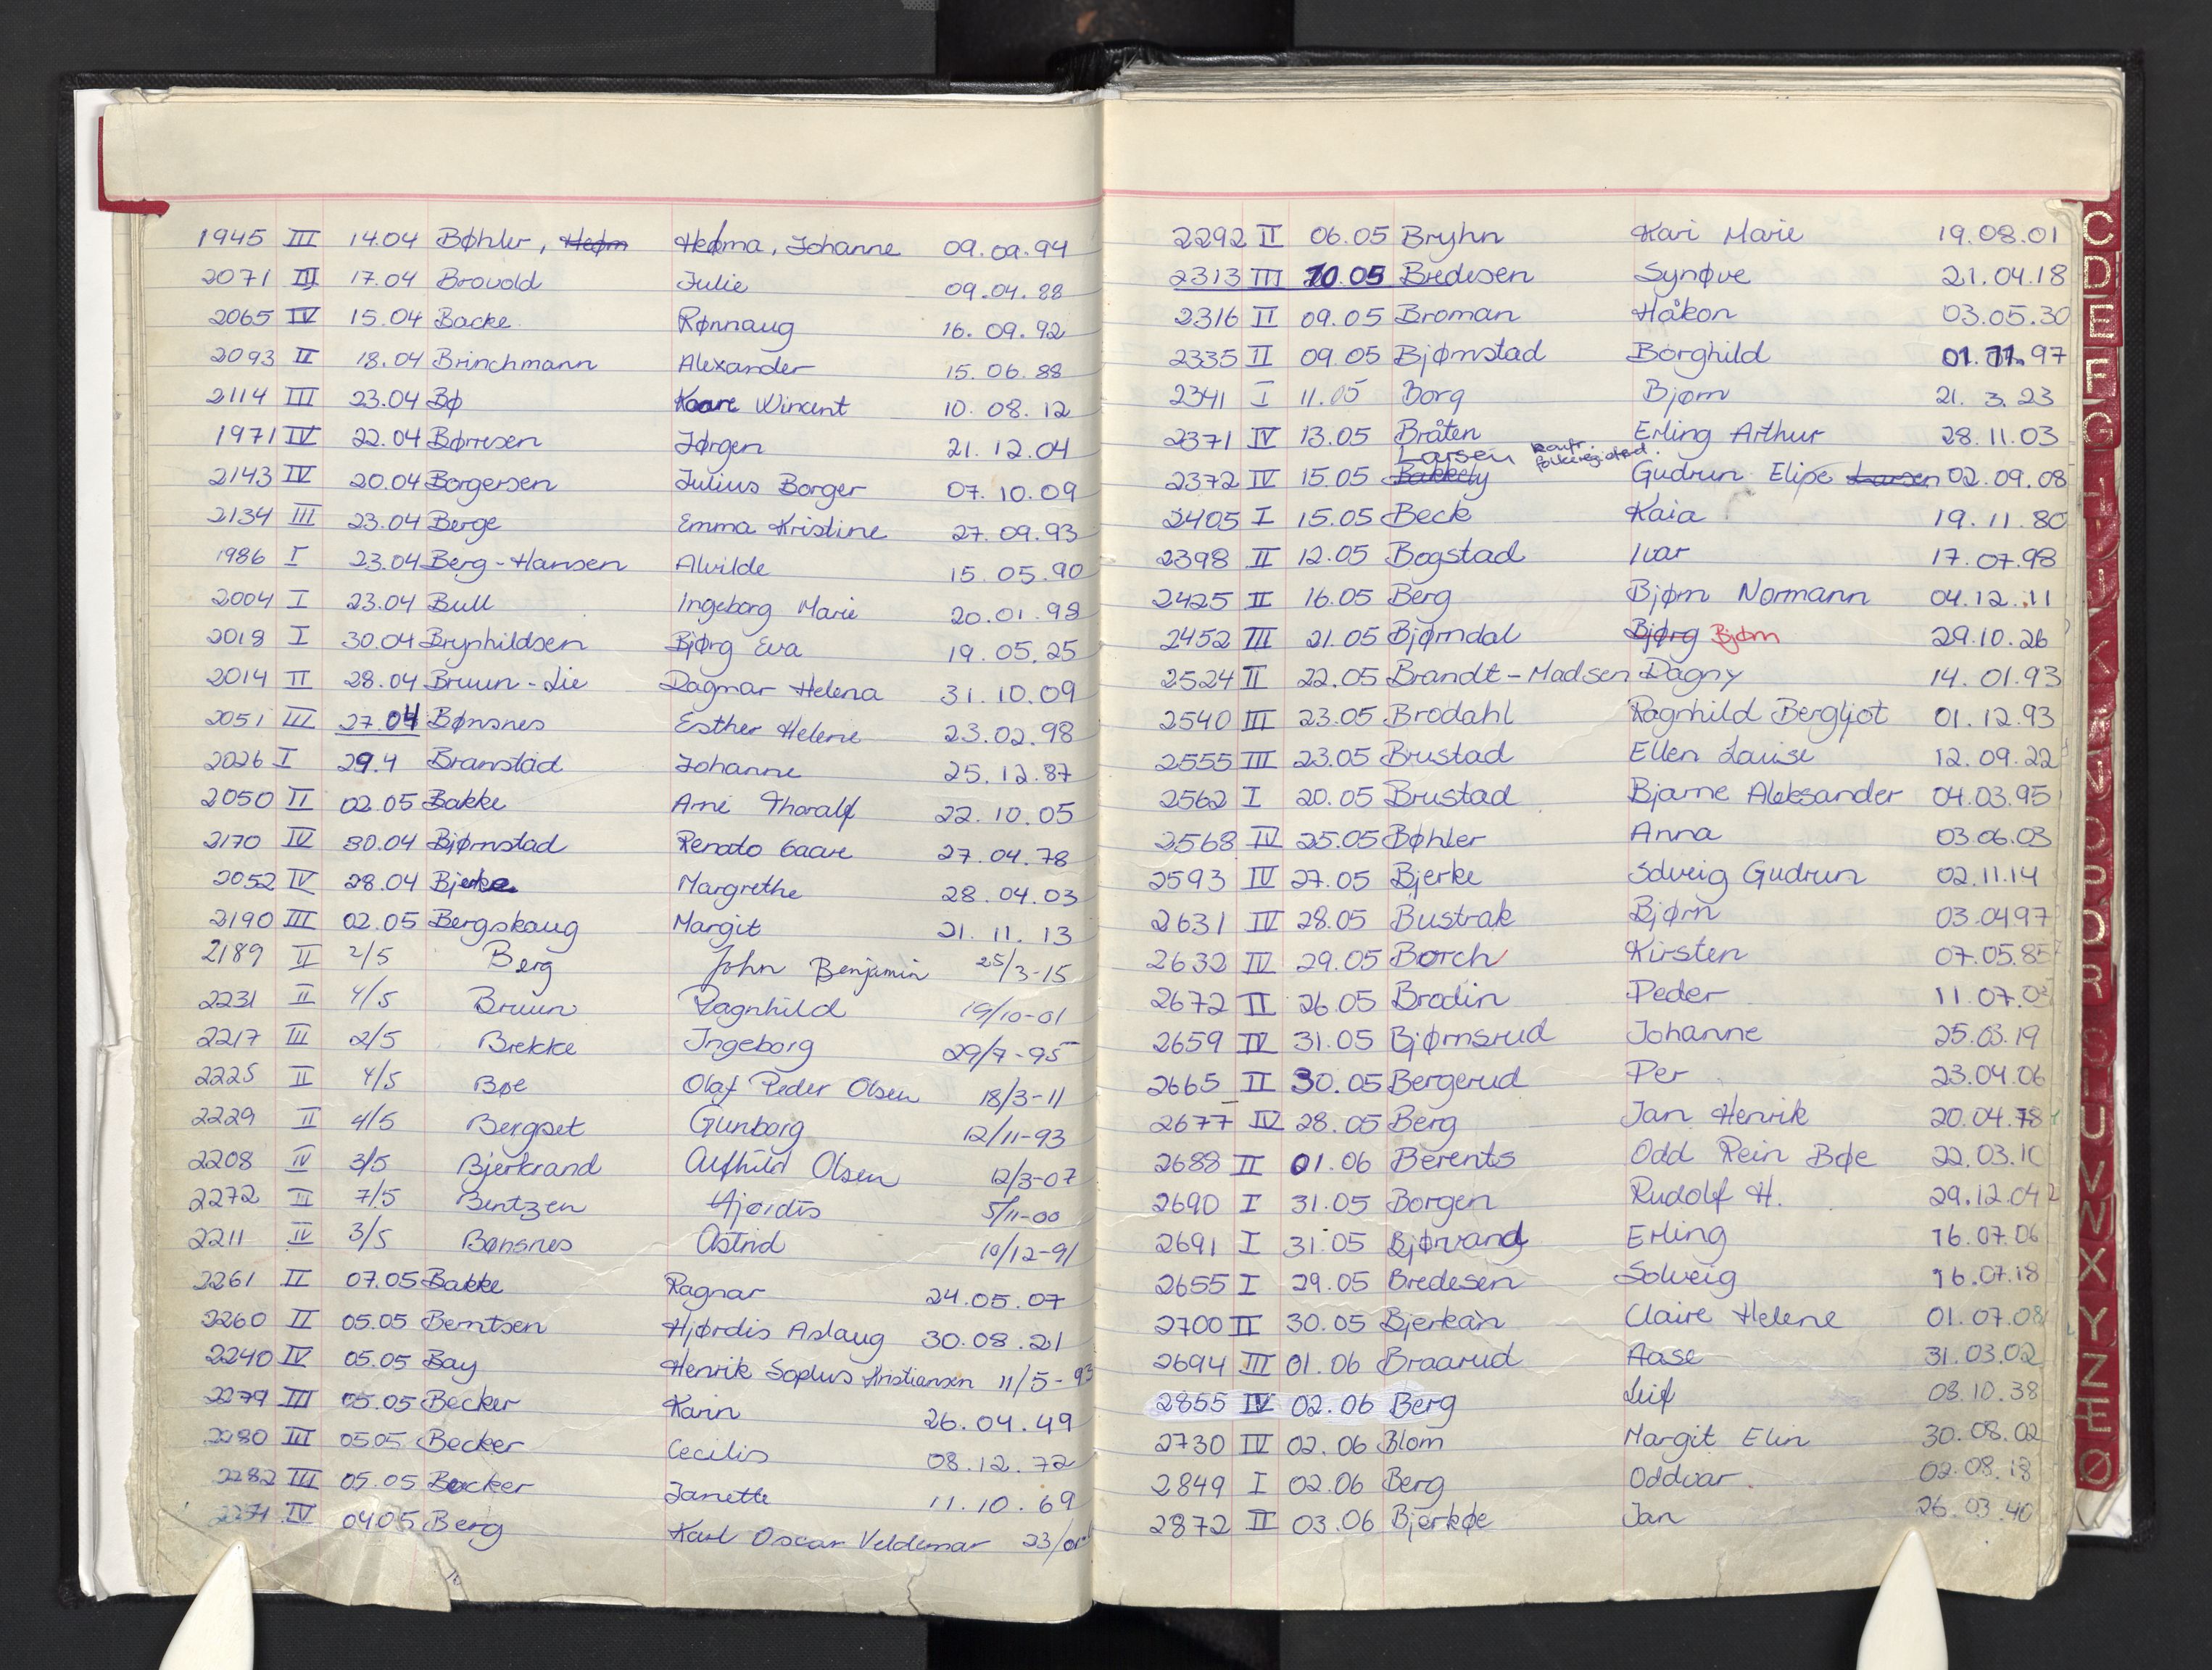 1945 III 14.04 Bøhler, Hedm Hedma, Johanne 09.09.94
2071 III 17.04 Brovold Julie 09.04.88
2065 IV 15.04 Backe Rønnaug 16.09.92
2093 II 18.04 Brinchmann Alexander 15.06.88
2114 III 23.04 Bø Kaare Wincent 10.08.12
1971 IV 22.04 Børresen Jørgen 21.12.04
2143 IV 20.04 Borgersen Julius Borger 07.10.09
2134 III 23.04 Berge Emma Kristine 27.09.93
1986 I 23.04 Berg-Hansen Alvilde 15.05.90
2004 I 23.04 Bull Ingeborg Marie 20.01.98
2018 I 30.04 Brynhildsen Bjørg Eva 19.05.25
2014 II 28.04 Bruun-Lie Dagmar Helena 31.10.09
2051 III 27.04 Bønsnes Esther Helene 23.02.98
2026 I 29.4 Branstad Johanne 25.12.87
2050 II 02.05 Bakke Arne Thoralf 22.10.05
2170 IV 30.04 Bjørnstad Renato Gaare 27.04.78
2052 IV 28.04 Bjerke Margrethe 28.04.03
2190 III 02.05 Bergskaug Margit 21.11.13
2189 II 2/5 Berg John Benjamin 25/3-15
2231 II 4/5 Bruun Ragnhild 19/10-01
2217 III 2/5 Brekke Ingeborg 29/7-95
2225 II 4/5 Bøe Olaf Peder Olsen 18/3-11
2229 II 4/5 Bergset Gunborg 12/11-93
2208 IV 3/5 Bjerkrand Alfhild Olsen 12/3-07
2272 II 7/5 Bentzen Hjørdis 5/11-00
2211 IV 3/5 Bønsnes Astrid 19/12-91
2261 II 07.05 Bakke Ragnar 24.05.07
2260 II 05.05 Berntsen Hjørdis Aslaug 30.08.21
2240 IV 05.05 Bay Henrik Sophus Kristiansen 11/5-93
2279 III 05.05 Becker Karin 26.04.49
2280 III 05.05 Becker Cecilis 08.12.72
2282 III 05.05 Becker Janette 11.10.69
2271 IV 04.05 Berg Karl Oscar Veldemar 23/01
2292 II 06.05 Bryhn Kari Marie 19.08.01
2313 III 10.05 Bredesen Synøve 21.04.18
2316 II 09.05 Broman Håkon 03.05.30
2335 II 09.05 Bjørnstad Borghild 01.11.97
2341 I 11.05 Borg Bjørn 21.3.23
2371 IV 13.05 Bråten Erling Arthur 28.11.03
Larsen
2372 IV 15.05 Bakkely Gudrun Elise Larsen 02.09.08
2405 I 15.05 Beck Kaia 19.11.80
2398 II 12.05 Bogstad Ivar 17.07.98
2425 II 16.05 Berg Bjørn Normann 04.12.11
2452 III 21.05 Bjørndal Bjørg Bjørn 29.10.26
2524 II 22.05 Brandt-Madsen Dagny 14.01.93
2540 III 23.05 Brodahl Ragnhild Bergljot 01.12.93
2555 III 23.05 Brustad Ellen Louise 12.09.22
2562 I 20.05 Brustad Bjarne Aleksander 04.03.95
2568 IV 25.05 Bøhler Anna 03.06.03
2593 IV 27.05 Bjerke Solveig Gudrun 02.11.14
2631 IV 28.05 Bustrak Bjørn 03.04 97
2632 IV 29.05 Borch Kirsten 07.05.85
2672 II 26.05 Brodin Peder 11.07.0
2659 IV 31.05 Bjørnsrud Johanne 25.03.19
2665 II 30.05 Bergerud Per 23.04.06
2677 IV 28.05 Berg Jan Henrik 20.04.78
2688 II 01.06 Berents Odd Rein Bøe 22.03.10
2690 I 31.05 Borgen Rudolf H. 29.12.04
2691 I 31.05 Bjørvand Erling 16.07.06
2655 I 29.05 Bredesen Solveig 16.07.18
2700 II 30.05 Bjerkan Claire Helene 01.07.08
2694 III 01.06 Braarud Aase 31.03.02
2855 IV 02.06 Berg Leif 08.10.38
2730 IV 02.06 Blom Margit Elin 30.08.02
2849 I 02.06 Berg Oddvar 02.08.18
2872 II 03.06 Bjerkøe Jan 26.03.40
C
D
E
F
G
I
J
K
N
O
P
Q
R
S
T
U
V
W
X
Y
Z
Æ
Ø